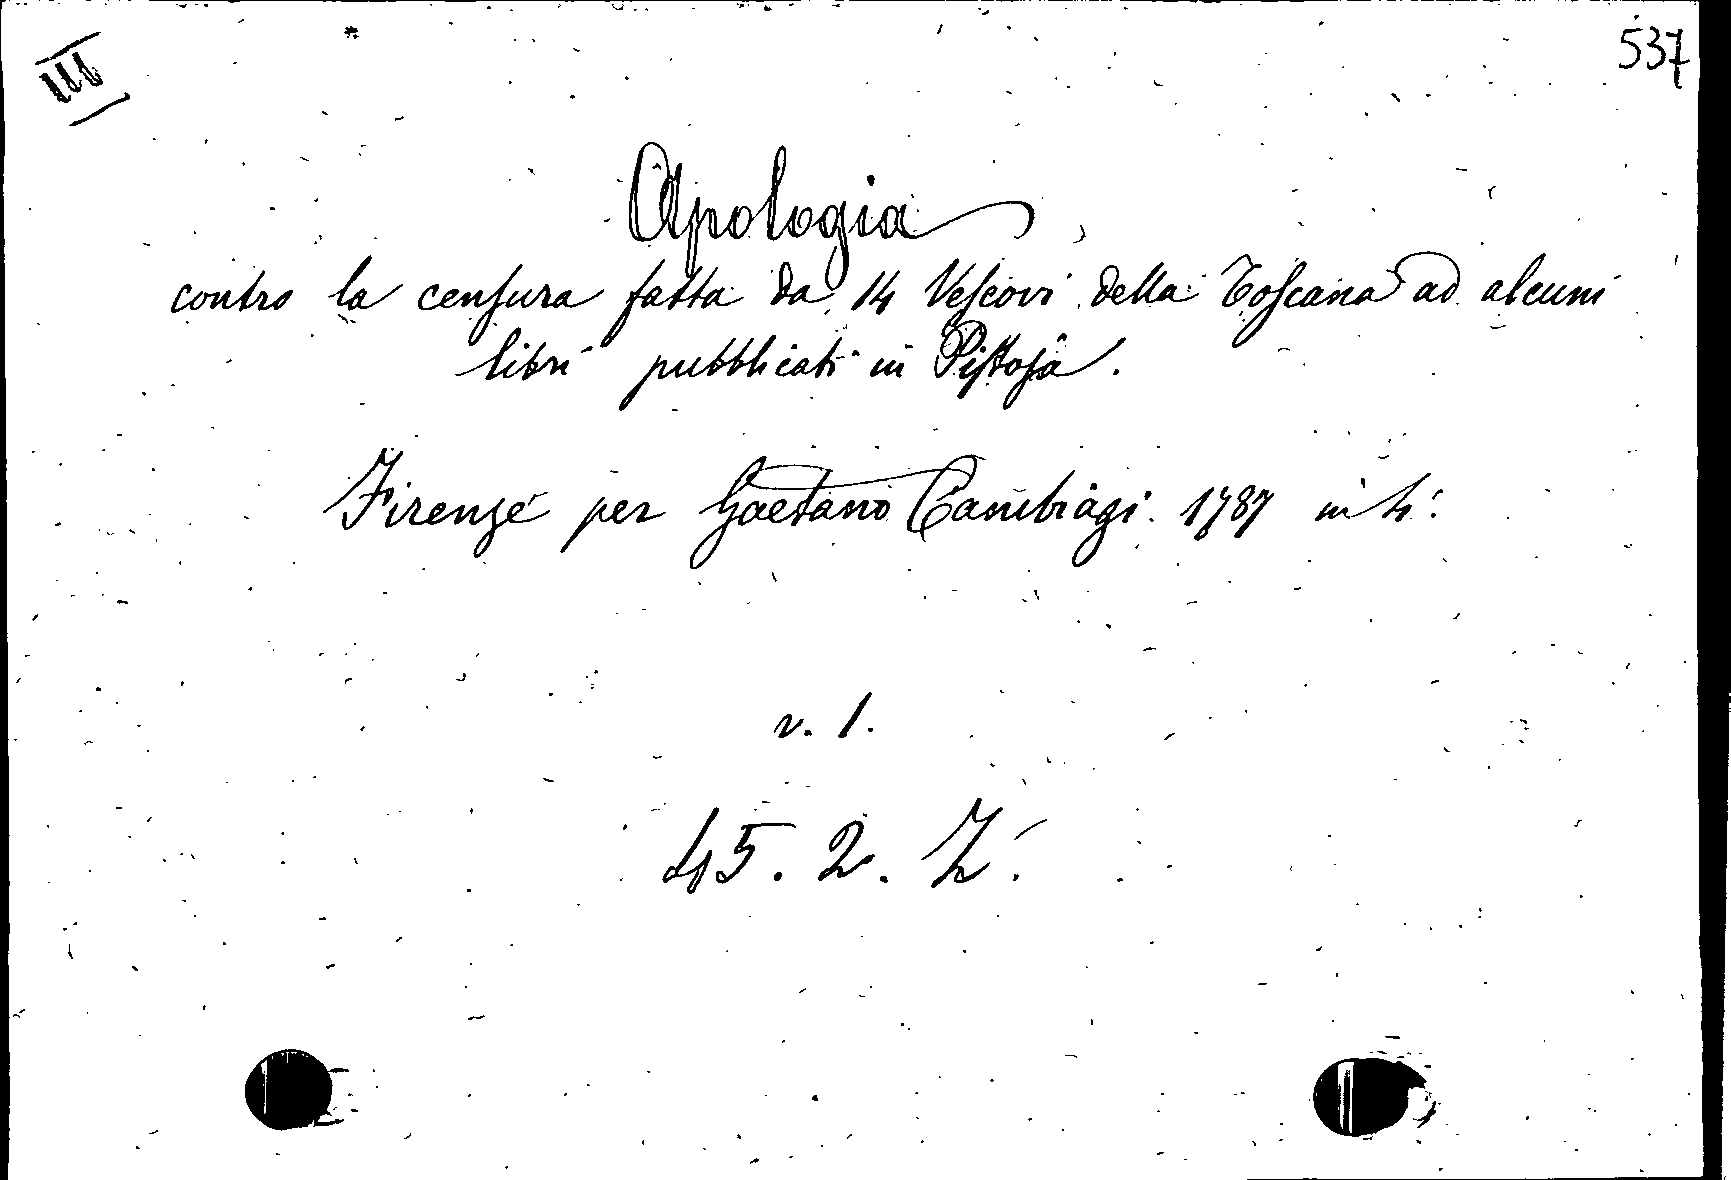 III
537
Apologia
contro la censura fatta da 14 Vescovi della Toscana ad alcuni
libri pubblicati in Pistoja.
Firenze per Gaetano Cambiagi. 1787 in 4.
v. 1.
45. 2. Z.